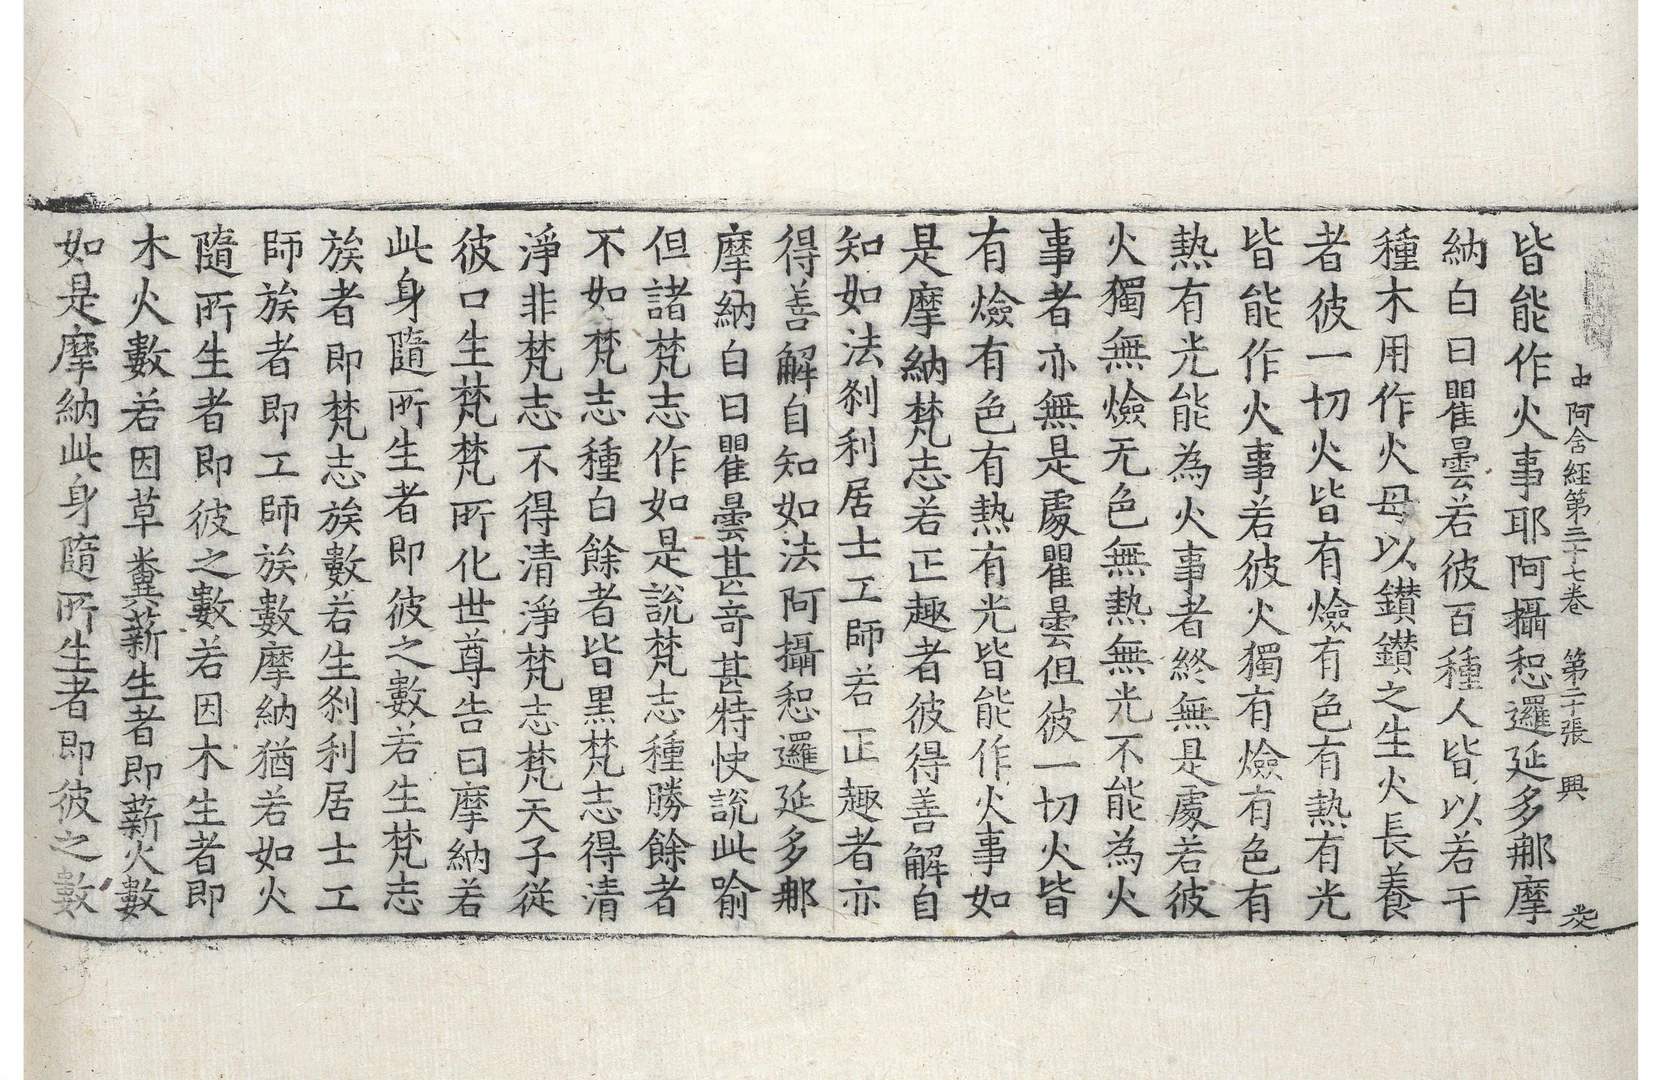 中阿含經第三十七卷 第二十張 興
皆能作火事耶阿攝惒邏延多那摩
納白曰瞿曇若彼百種人皆以若干
種木用作火母以鑽鑽之生火長養
者彼一切火皆有㷿有色有熱有光
皆能作火事若彼火獨有㷿有色有
熱有光能為火事者終無是處若彼
火獨無㷿无色無熱無光不能為火
事者亦無是處瞿曇但彼一切火皆
有㷿有色有熱有光皆能作火事如
是摩納梵志若正趣者彼得善解自
知如法剎利居士工師若正趣者亦
得善解自知如法阿攝惒邏延多那
摩納白曰瞿曇甚奇甚特快說此喻
但諸梵志作如是說梵志種勝餘者
不如梵志種白餘者皆黑梵志得清
淨非梵志不得清淨梵志梵天子從
彼口生梵梵所化世尊告曰摩納若
此身隨所生者即彼之數若生梵志
族者即梵志族數若生剎利居士工
師族者即工師族數摩納猶若如火
隨所生者即彼之數若因木生者即
木火數若因草糞薪生者即薪火數
如是摩納此身隨所生者即彼之數